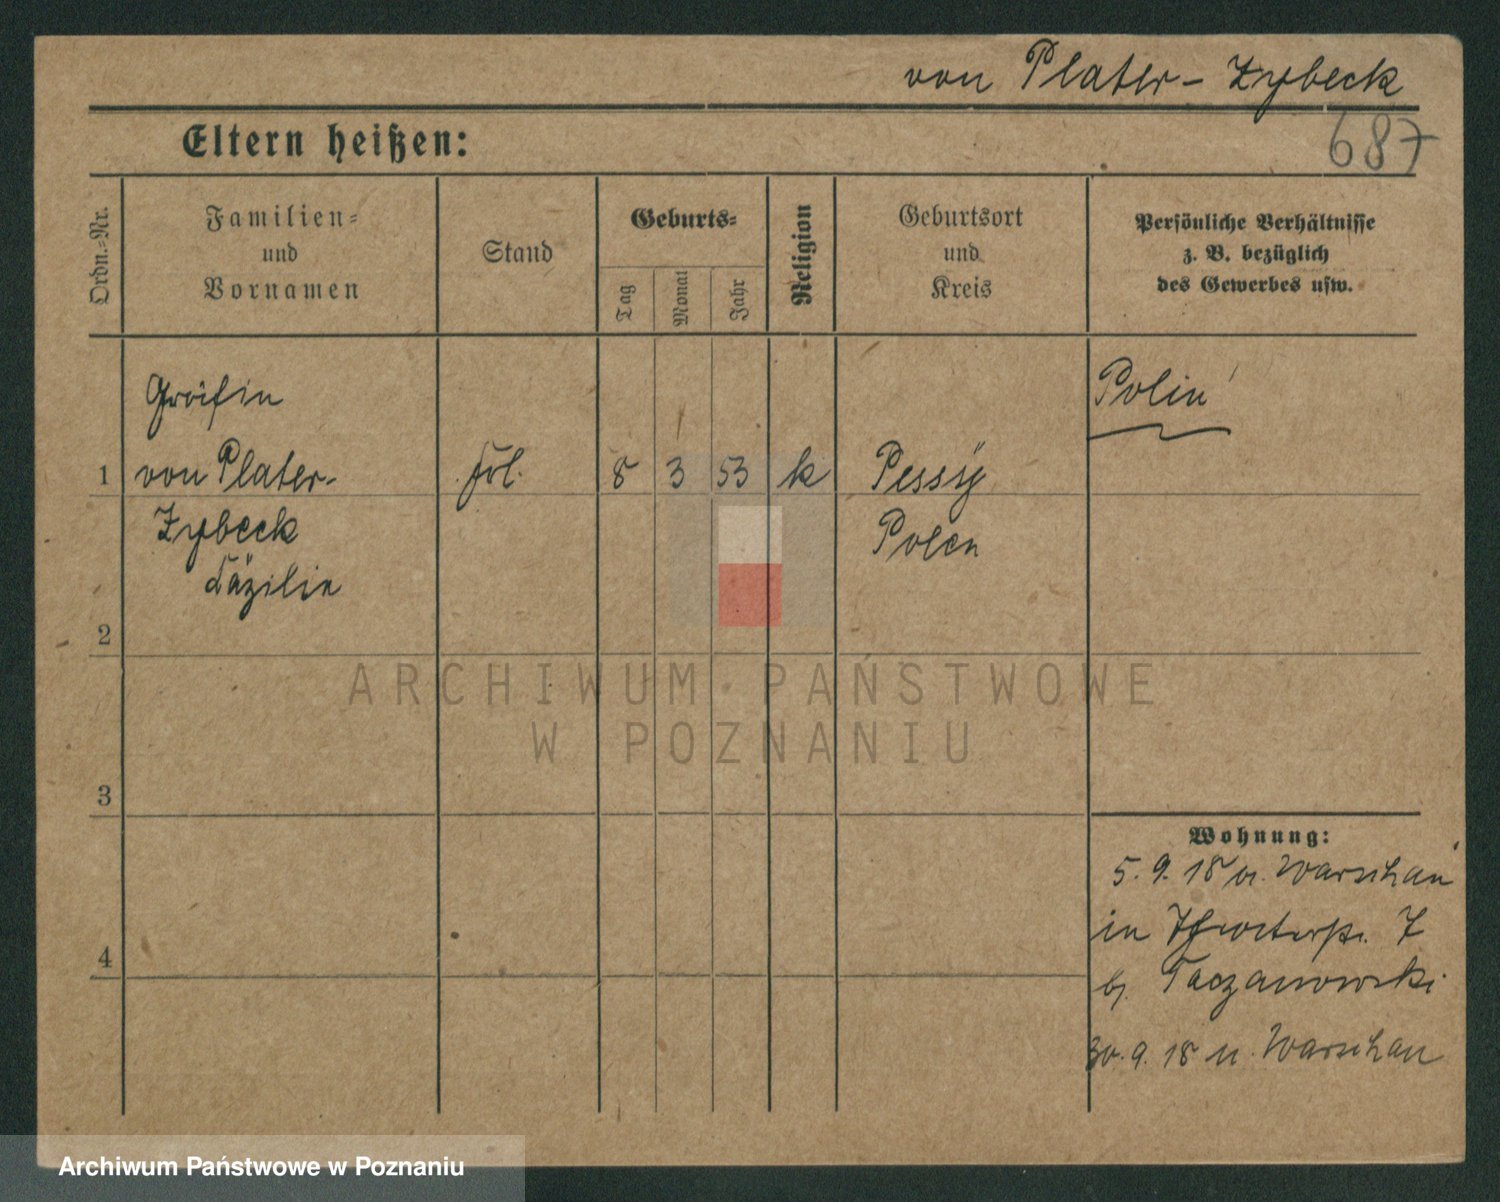 von Plater-Zybeck
687
Eltern heißen:
Ordn.-Nr.
Familien-
und
Vornamen
Stand
Geburts-
Tag
Monat
Jahr
Religion
Geburtsort
und
Kreis
Persönliche Verhältnisse
z. B. bezüglich
des Gewerbes usw.
Gräfin
1 von Plater- Frl. 8 3 53 k Pessÿ
Zybeck
Cäzilie
Polen
Polin
2
3
4
Wohnung:
5. 9. 18 v. Warschau
in 7
b. Taczanowski
30. 9. 18 n. Warschau
ARCHIWUM PAŃSTWOWE
W POZNANIU
Archiwum Państwowe w Poznaniu